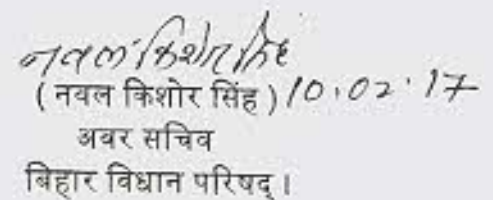 नवल किशोर सिंह
(नवल किशोर सिंह) 10.02.17
अवर सचिव
बिहार विधान परिषद् ।